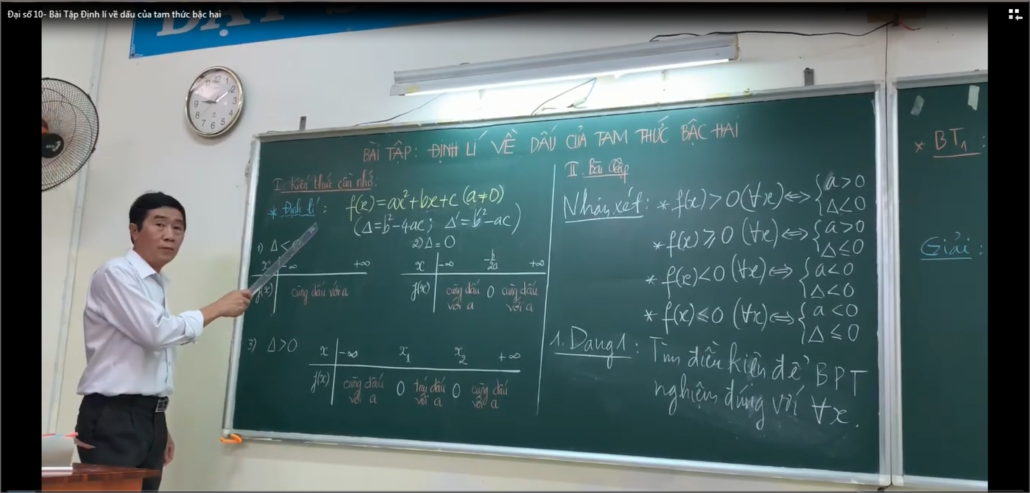 Đại số 10- Bài Tập Định lí về dấu của tam thức bậc hai
BÀI TẬP: ĐỊNH LÍ VỀ DẤU CỦA TAM THỨC BẬC HAI
I. Kiến thức cần nhớ.
* Định lí: f(x)=ax²+bx+c (a≠0)
(Δ=b²-4ac; Δ'=b'²-ac)
1) Δ<
x -∞ +∞
f(x) cùng dấu với a
2) Δ=0
x -∞ -b/2a +∞
f(x) cùng dấu với a 0 cùng dấu với a
3) Δ>0
x -∞ x₁ x₂ +∞
f(x) cùng dấu với a 0 trái dấu với a 0 cùng dấu với a
II. Bài tập
Nhận xét: * f(x)>0 (∀x) ⇔ { a>0
Δ<0
* f(x)≥0 (∀x) ⇔ { a>0
Δ≤0
* f(x)<0 (∀x) ⇔ { a<0
Δ<0
* f(x)≤0 (∀x) ⇔ { a<0
Δ≤0
1. Dạng 1: Tìm điều kiện để BPT
nghiệm đúng với ∀x.
* BT1:
Giải: